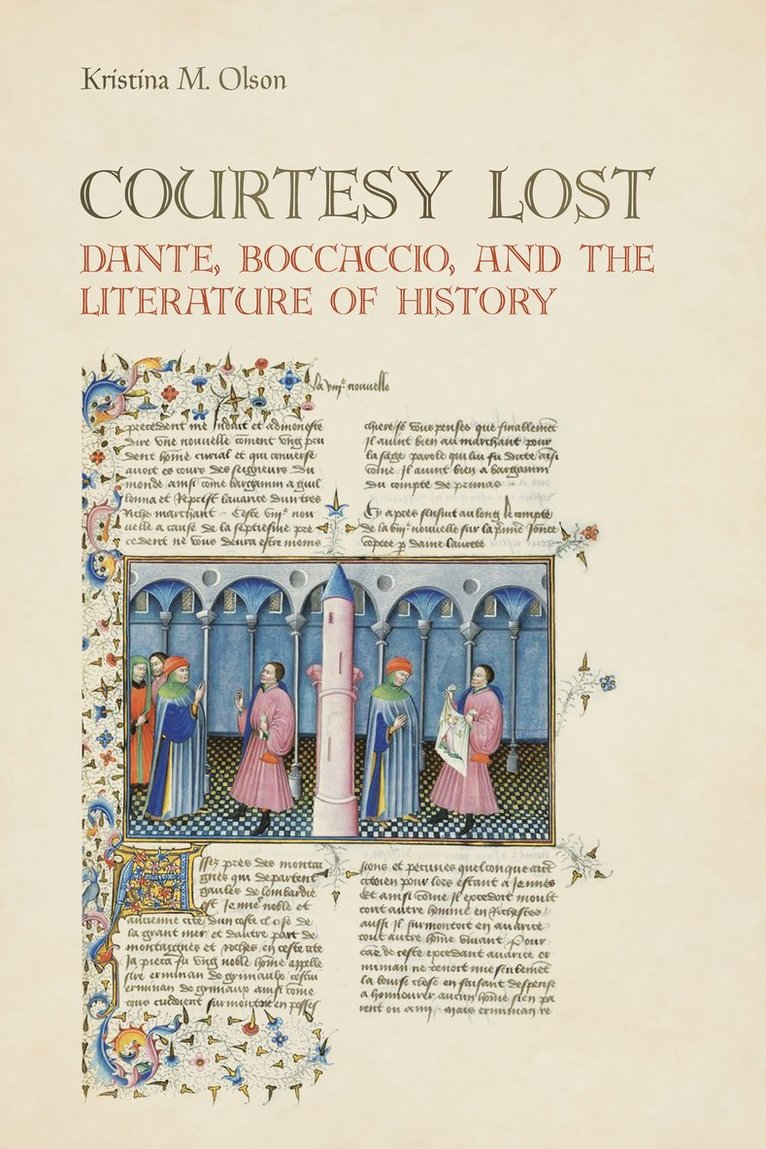 Kristina M. Olson
COURTESY LOST
DANTE, BOCCACCIO, AND THE
LITERATURE OF HISTORY
la viijᵉ nouvelle
precedent me induit et admoneste
dire vne nouvelle coment vng pru
dent hōme curial et qui converse
avoit es cours des seigneurs du
monde ainsi cōme bargamin a guil
lōma et reprist lavarice dun tres
riche marchant Ceste viijᵉ nou
uelle a cause de la septiesme pre
cedent ne vous devra estre moins
chere se vous penses que finablemēt
Il avint bien au marchant pour
la sage parole qui luy fu dicte aisi
cōme Il avint bien a bargamin
du compte de primas
Cy apres sensuit au long le compte
de la viijᵉ nouvelle sur la
par dame laurete
ssez pres des montai
gnes qui departent
gaules de lombardie
est Jennes noble et
ancienne cite dun coste
la grant mer et dautre part de
montaignes et roches en ceste cite
Ja pieca fu vng noble hōme appelle
sire erminan de grimaulx cestui
erminan de grimaux ainsi cōme
tous cuidoient surmontoit en posses
sions et pecunes quelconque autre
citoien pour lors estant a Jennes
Et ainsi cōme Il excedoit moult
tout autre homme en richesses
aussi Il surmontoit en avarice
tout autre hōme vivant Pour
de ceste excedant avarice er
minan ne tenoit mie seulement
la bourse close en faisant despense
a honnourer aucun hōme sien pa
rent ou amy mais erminan se